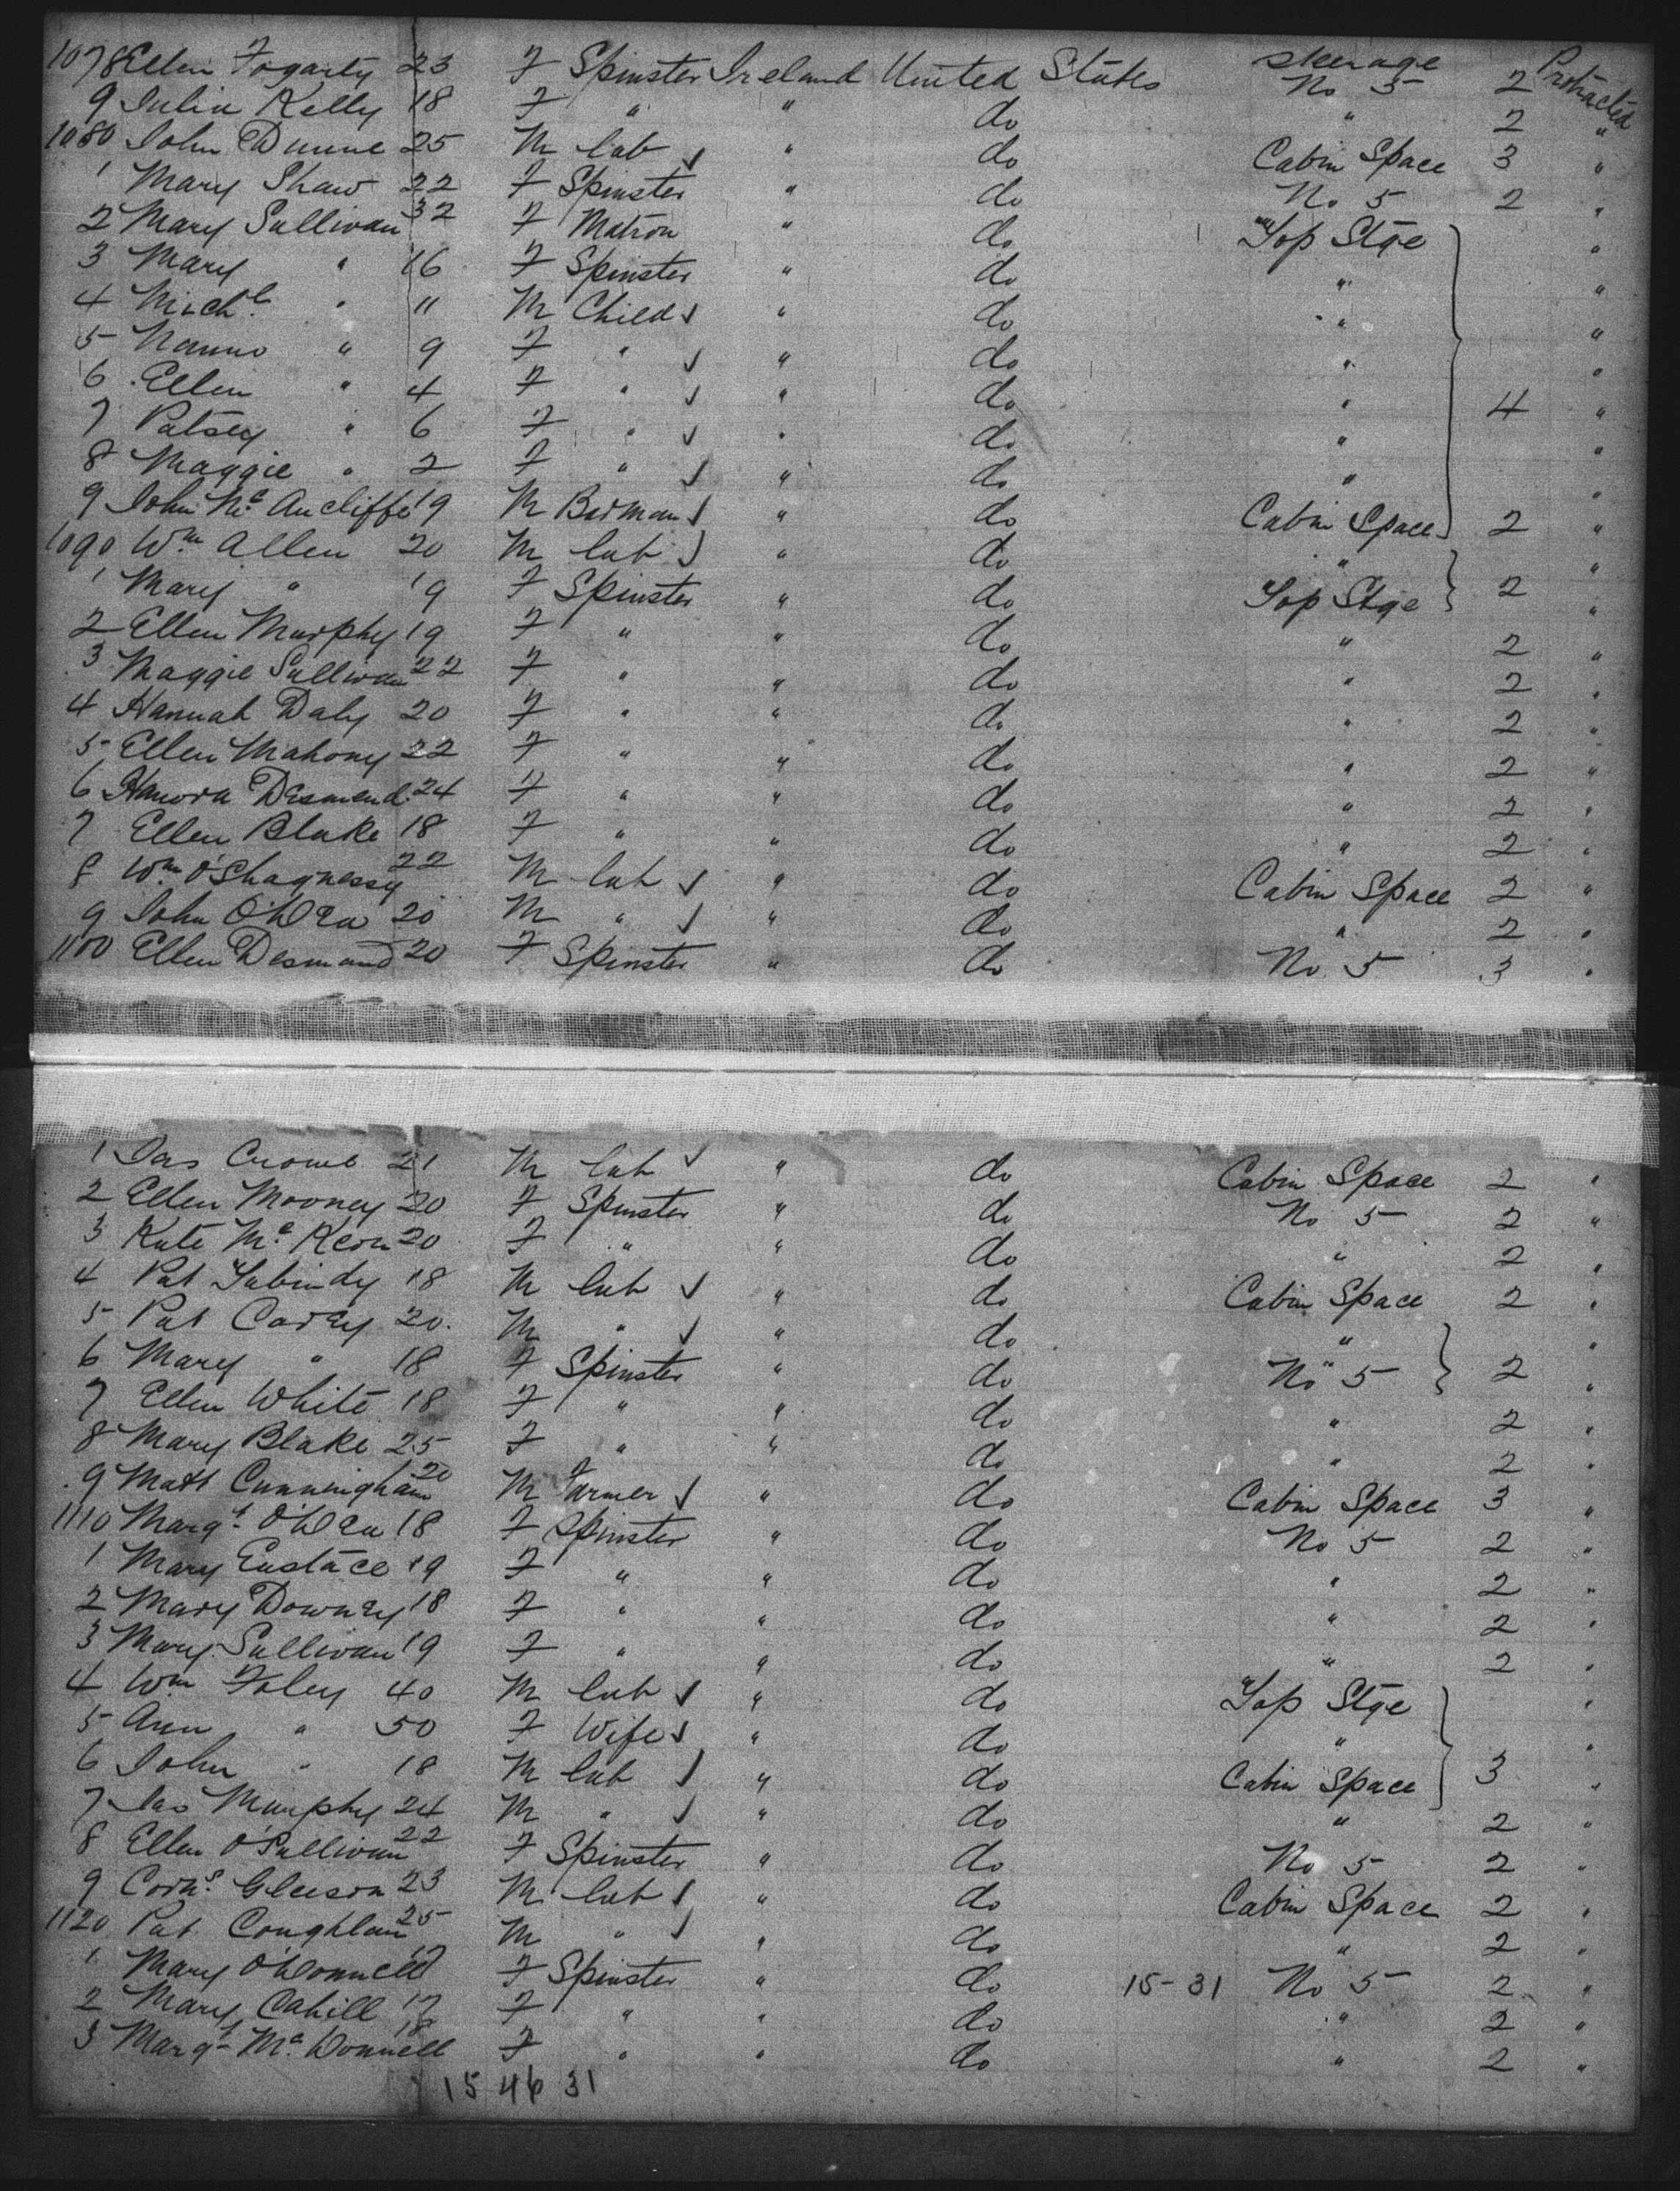 1078 Ellen Fogarty 23 F Spinster Ireland United States Steerage No 5 2 Protracted
9 Julia Kelly 18 F " " do " 2 "
1080 John Dunne 25 M lab " do Cabin Space 3 "
1 Mary Shaw 22 F Spinster " do No 5 2 "
2 Mary Sullivan 32 F Matron " do Top Stge "
3 Mary " 16 F Spinster " do " "
4 Michl " 11 M Child " do " "
5 Nanno " 9 F " " do " "
6 Ellen " 4 F " " do " 4 "
7 Patsey " 6 F " " do " "
8 Maggie " 2 F " " do " "
9 John Mc Aucliffe 19 M Barman " do Cabin Space 2 "
1090 Wm Allen 20 M lab " do " "
1 Mary " 19 F Spinster " do Top Stge 2 "
2 Ellen Murphy 19 F " " do " 2 "
3 Maggie Sullivan 22 F " " do " 2 "
4 Hannah Daly 20 F " " do " 2 "
5 Ellen Mahony 22 F " " do " 2 "
6 Hanora Desmend 24 F " " do " 2 "
7 Ellen Blake 18 F " " do " 2 "
8 Wm O'Shagnessy 22 M lab " do Cabin Space 2 "
9 John O'Dea 20 M " " do " 2 "
1100 Ellen Desmand 20 F Spinster " do No 5 3 "
1 Jas Crowe 21 M lab " do Cabin Space 2 "
2 Ellen Mooney 20 F Spinster " do No 5 2 "
3 Kate Mc Keon 20 F " " do " 2 "
4 Pat 18 M lab " do Cabin Space 2 "
5 Pat Carey 20 M " " do " "
6 Mary " 18 F Spinster " do No 5 2 "
7 Ellen White 18 F " " do " 2 "
8 Mary Blake 25 F " " do " 2 "
9 Matt Cunningham 20 M Farmer " do Cabin Space 3 "
1110 Margt O'Dea 18 F Spinster " do No 5 2 "
1 Mary Eustace 19 F " " do " 2 "
2 Mary Downey 18 F " " do " 2 "
3 Mary Sullivan 19 F " " do " 2 "
4 Wm Foley 40 M lab " do Top Stge "
5 Ann " 50 F Wife " do " "
6 John " 18 M lab " do Cabin Space 3 "
7 Jas Murphy 24 M " " do " 2 "
8 Ellen O'Sullivan 22 F Spinster " do No 5 2 "
9 Corns Gleeson 23 M lab " do Cabin Space 2 "
1120 Pat Coughlan 25 M " " do " 2 "
1 Mary O'Donnell F Spinster " do 15-31 No 5 2 "
2 Mary Cahill 17 F " " do " 2 "
3 Margt Mc Donnell 18 F " " do " 2 "
15 46 31